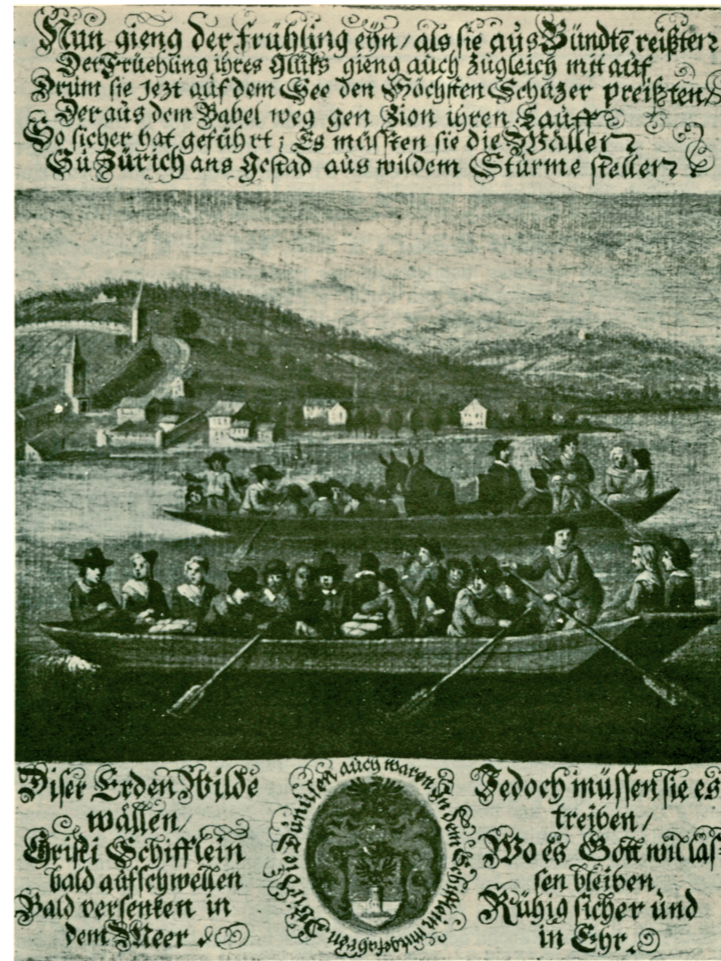 Nun gieng der Frühling eÿn/ als sie aus Bündtē reißten
Der Früehling ihres Glüks gieng auch zugleich mit auf
Drum sie Jezt auf dem See den Höchsten Schüzer preißten/
Der aus dem Babel weg gen Zion ihren Lauff
So sicher hat geführt; Es müssten sie die Wällen
Zü Zürich ans Gestad aus wildem Stürme stellen
Diser Erden Wilde
wällen/
Cristi Schifflein
bald aufschwellen
Bald versenken in
dem Meer
Wir die Danüsen auch waren In dem
Jedoch müssen sie es
treiben/
Wo es Gott wil las-
sen bleiben,
Rühig sicher und
in Ehr.